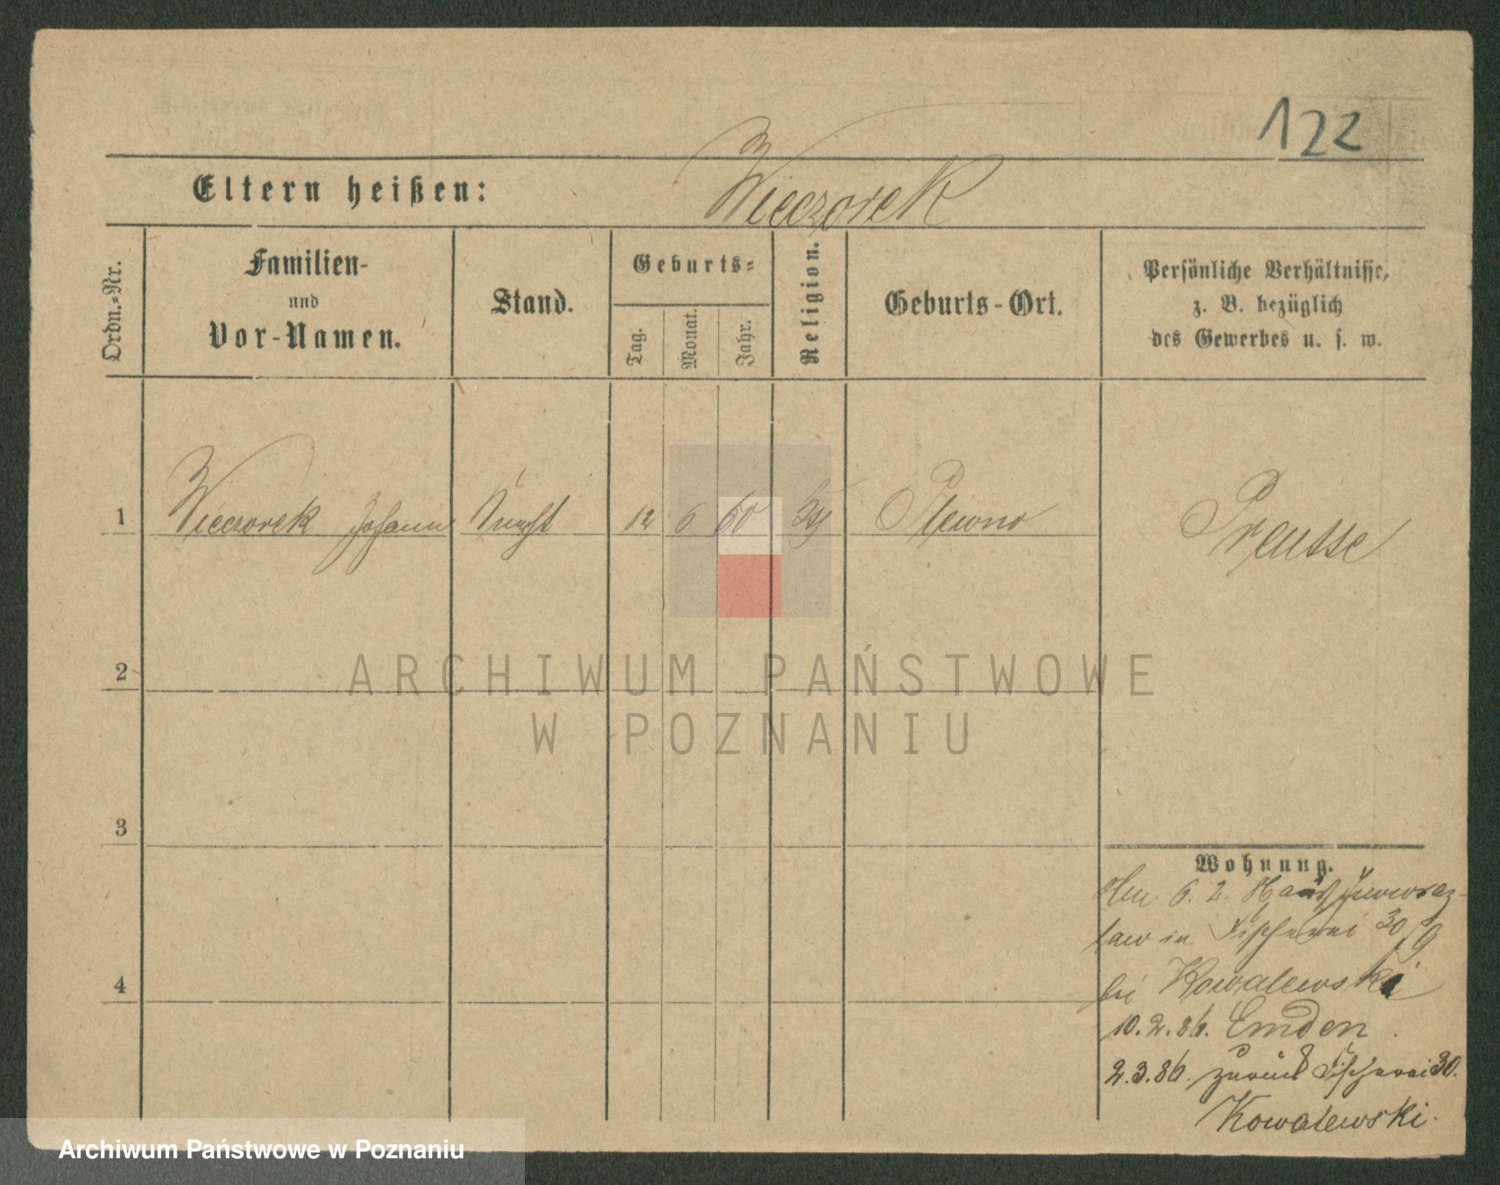 122
Eltern heißen: Wieczorek
Ordn.-Nr.
Familien-
und
Vor-Namen.
Stand.
Geburts-
Tag.
Monat.
Jahr.
Religion.
Geburts-Ort.
Persönliche Verhältnisse,
z. B. bezüglich
des Gewerbes u. s. w.
1 Wieczorek Johann Knecht 12 6 60 Plewno Preusse
2
ARCHIWUM PAŃSTWOWE
W POZNANIU
3
Wohnung.
6. 2.
in Fischerei 30
4
bei Kowalewski
10.2.86. Emden
2.3.86. zurück Fischerei 30.
Kowalewski.
Archiwum Państwowe w Poznaniu